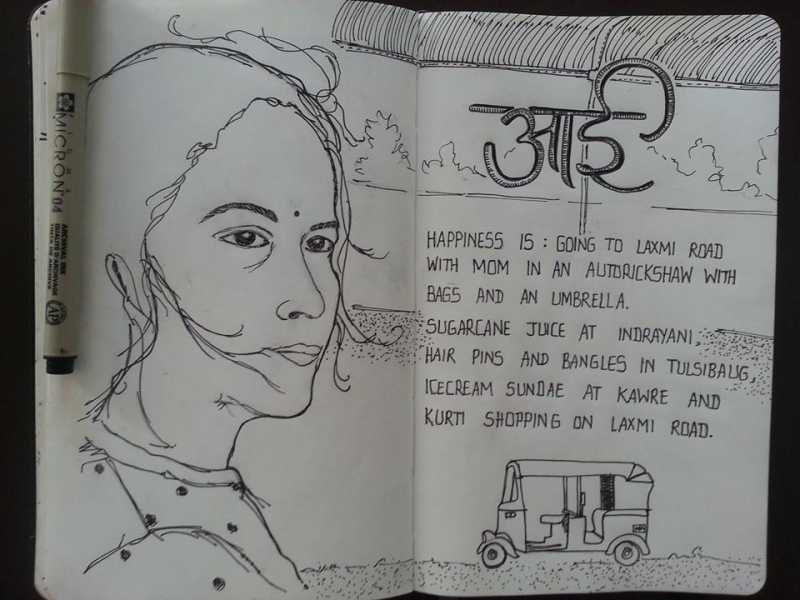 आई
HAPPINESS IS : GOING TO LAXMI ROAD
WITH MOM IN AN AUTORICKSHAW WITH
BAGS AND AN UMBRELLA.
SUGARCANE JUICE AT INDRAYANI,
HAIR PINS AND BANGLES IN TULSIBAUG,
ICECREAM SUNDAE AT KAWRE AND
KURTI SHOPPING ON LAXMI ROAD.
MICRON 04
ARCHIVAL INK
AP